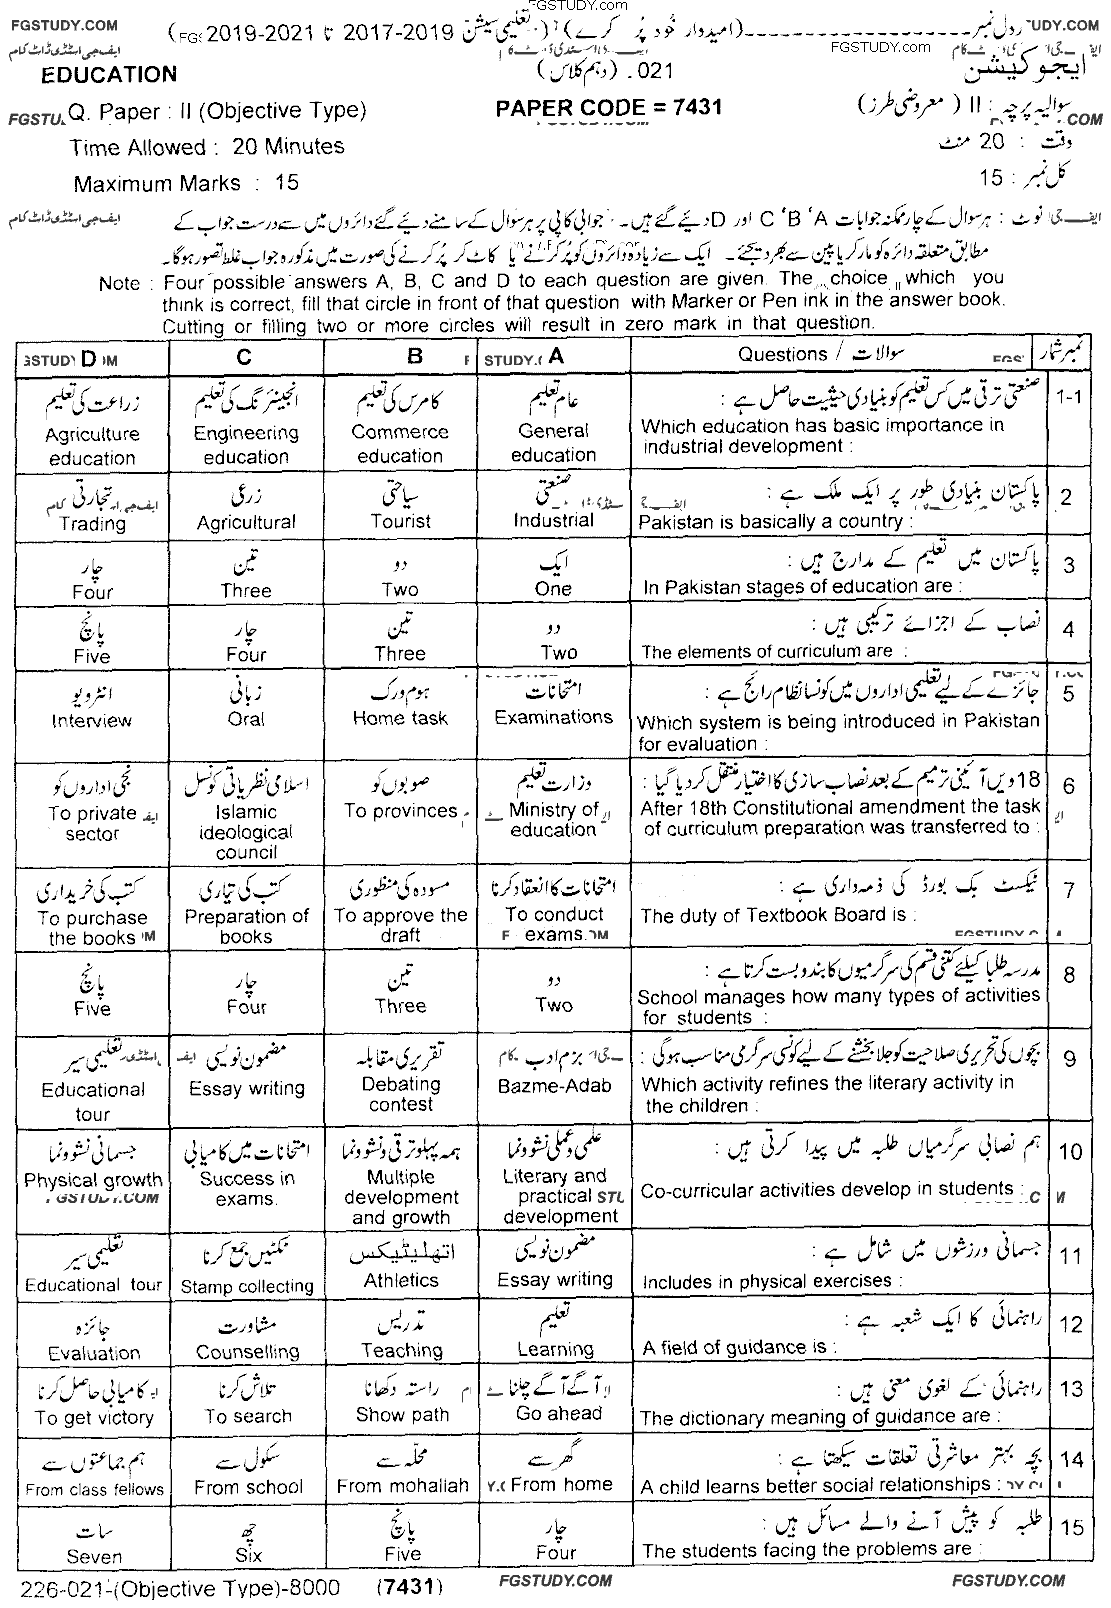 FGSTUDY.COM
FGSTUDY.COM
رول نمبر (امیدوار خود پُر کرے) (تعلیمی سیشن 2017-2019 تا 2019-2021)
FGSTUDY.COM
ایف جی اسٹڈی ڈاٹ کام
FGSTUDY.COM
EDUCATION
021. (دہم کلاس)
ایجوکیشن
Q. Paper : II (Objective Type)
PAPER CODE = 7431
سوالیہ پرچہ : II (معروضی طرز)
Time Allowed : 20 Minutes
وقت : 20 منٹ
Maximum Marks : 15
کل نمبر : 15
نوٹ : ہر سوال کے چار ممکنہ جوابات A ، B ، C اور D دئیے گئے ہیں۔ جوابی کاپی پر ہر سوال کے سامنے دئیے گئے دائروں میں سے درست جواب کے
مطابق متعلقہ دائرہ کو مارکر یا پین سے بھر دیجئے۔ ایک سے زیادہ دائروں کو پُر کرنے یا کاٹ کر پُر کرنے کی صورت میں مذکورہ جواب غلط تصور ہوگا۔
Note : Four possible answers A, B, C and D to each question are given. The choice which you
think is correct, fill that circle in front of that question with Marker or Pen ink in the answer book.
Cutting or filling two or more circles will result in zero mark in that question.
D C B A Questions / سوالات نمبر شمار
1-1 صنعتی ترقی میں کس تعلیم کو بنیادی حیثیت حاصل ہے :
Which education has basic importance in
industrial development :
عام تعلیم
General
education
کامرس کی تعلیم
Commerce
education
انجینئرنگ کی تعلیم
Engineering
education
زراعت کی تعلیم
Agriculture
education
2 پاکستان بنیادی طور پر ایک ملک ہے :
Pakistan is basically a country :
صنعتی
Industrial
سیاحتی
Tourist
زرعی
Agricultural
تجارتی
Trading
3 پاکستان میں تعلیم کے مدارج ہیں :
In Pakistan stages of education are :
ایک
One
دو
Two
تین
Three
چار
Four
4 نصاب کے اجزائے ترکیبی ہیں :
The elements of curriculum are :
دو
Two
تین
Three
چار
Four
پانچ
Five
5 جائزے کے لیے تعلیمی اداروں میں کونسا نظام رائج ہے :
Which system is being introduced in Pakistan
for evaluation :
امتحانات
Examinations
ہوم ورک
Home task
زبانی
Oral
انٹرویو
Interview
6 18 ویں آئینی ترمیم کے بعد نصاب سازی کا اختیار منتقل کر دیا گیا :
After 18th Constitutional amendment the task
of curriculum preparation was transferred to :
وزارت تعلیم
Ministry of
education
صوبوں کو
To provinces
اسلامی نظریاتی کونسل
Islamic
ideological
council
نجی اداروں کو
To private
sector
7 ٹیکسٹ بک بورڈ کی ذمہ داری ہے :
The duty of Textbook Board is :
امتحانات کا انعقاد کرنا
To conduct
exams.
مسودہ کی منظوری
To approve the
draft
کتب کی تیاری
Preparation of
books
کتب کی خریداری
To purchase
the books
8 مدرسہ طلبا کیلئے کتنی قسم کی سرگرمیوں کا بندوبست کرتا ہے :
School manages how many types of activities
for students :
دو
Two
تین
Three
چار
Four
پانچ
Five
9 بچوں کی تحریری صلاحیت کو جلا بخشنے کے لیے کونسی سرگرمی مناسب ہوگی :
Which activity refines the literary activity in
the children :
بزم ادب
Bazme-Adab
تقریری مقابلہ
Debating
contest
مضمون نویسی
Essay writing
تعلیمی سیر
Educational
tour
10 ہم نصابی سرگرمیاں طلبہ میں پیدا کرتی ہیں :
Co-curricular activities develop in students :
علمی و عملی نشوونما
Literary and
practical
development
ہمہ پہلو ترقی و نشوونما
Multiple
development
and growth
امتحانات میں کامیابی
Success in
exams.
جسمانی نشوونما
Physical growth
11 جسمانی ورزشوں میں شامل ہے :
Includes in physical exercises :
مضمون نویسی
Essay writing
اتھلیٹیکس
Athletics
ٹکٹیں جمع کرنا
Stamp collecting
تعلیمی سیر
Educational tour
12 راہنمائی کا ایک شعبہ ہے :
A field of guidance is :
تعلیم
Learning
تدریس
Teaching
مشاورت
Counselling
جائزہ
Evaluation
13 راہنمائی کے لغوی معنی ہیں :
The dictionary meaning of guidance are :
آگے آگے چلنا
Go ahead
راستہ دکھانا
Show path
تلاش کرنا
To search
کامیابی حاصل کرنا
To get victory
14 بچہ بہتر معاشرتی تعلقات سیکھتا ہے :
A child learns better social relationships :
گھر سے
From home
محلہ سے
From mohallah
سکول سے
From school
ہم جماعتوں سے
From class fellows
15 طلبہ کو پیش آنے والے مسائل ہیں :
The students facing the problems are :
چار
Four
پانچ
Five
چھ
Six
سات
Seven
226-021-(Objective Type)-8000 (7431) FGSTUDY.COM FGSTUDY.COM